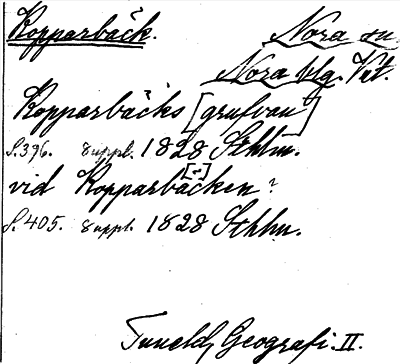 Kopparbäck. Nora sn
Nora blg. Vstm.
Kopparbäcks [grufvan]
S. 396. suppl. 1828 Sthlm.
vid Kopparbäcken?
[~]
S. 405. suppl. 1828 Sthlm.
Tuneld, Geografi. II.